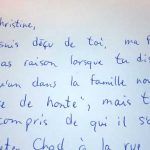 christine,
suis déçu de toi, ma f
as raison lorsque tu dis
u'un dans la famille nou
se de honte", mais t
compris de qui il s'a
Chad à la rue